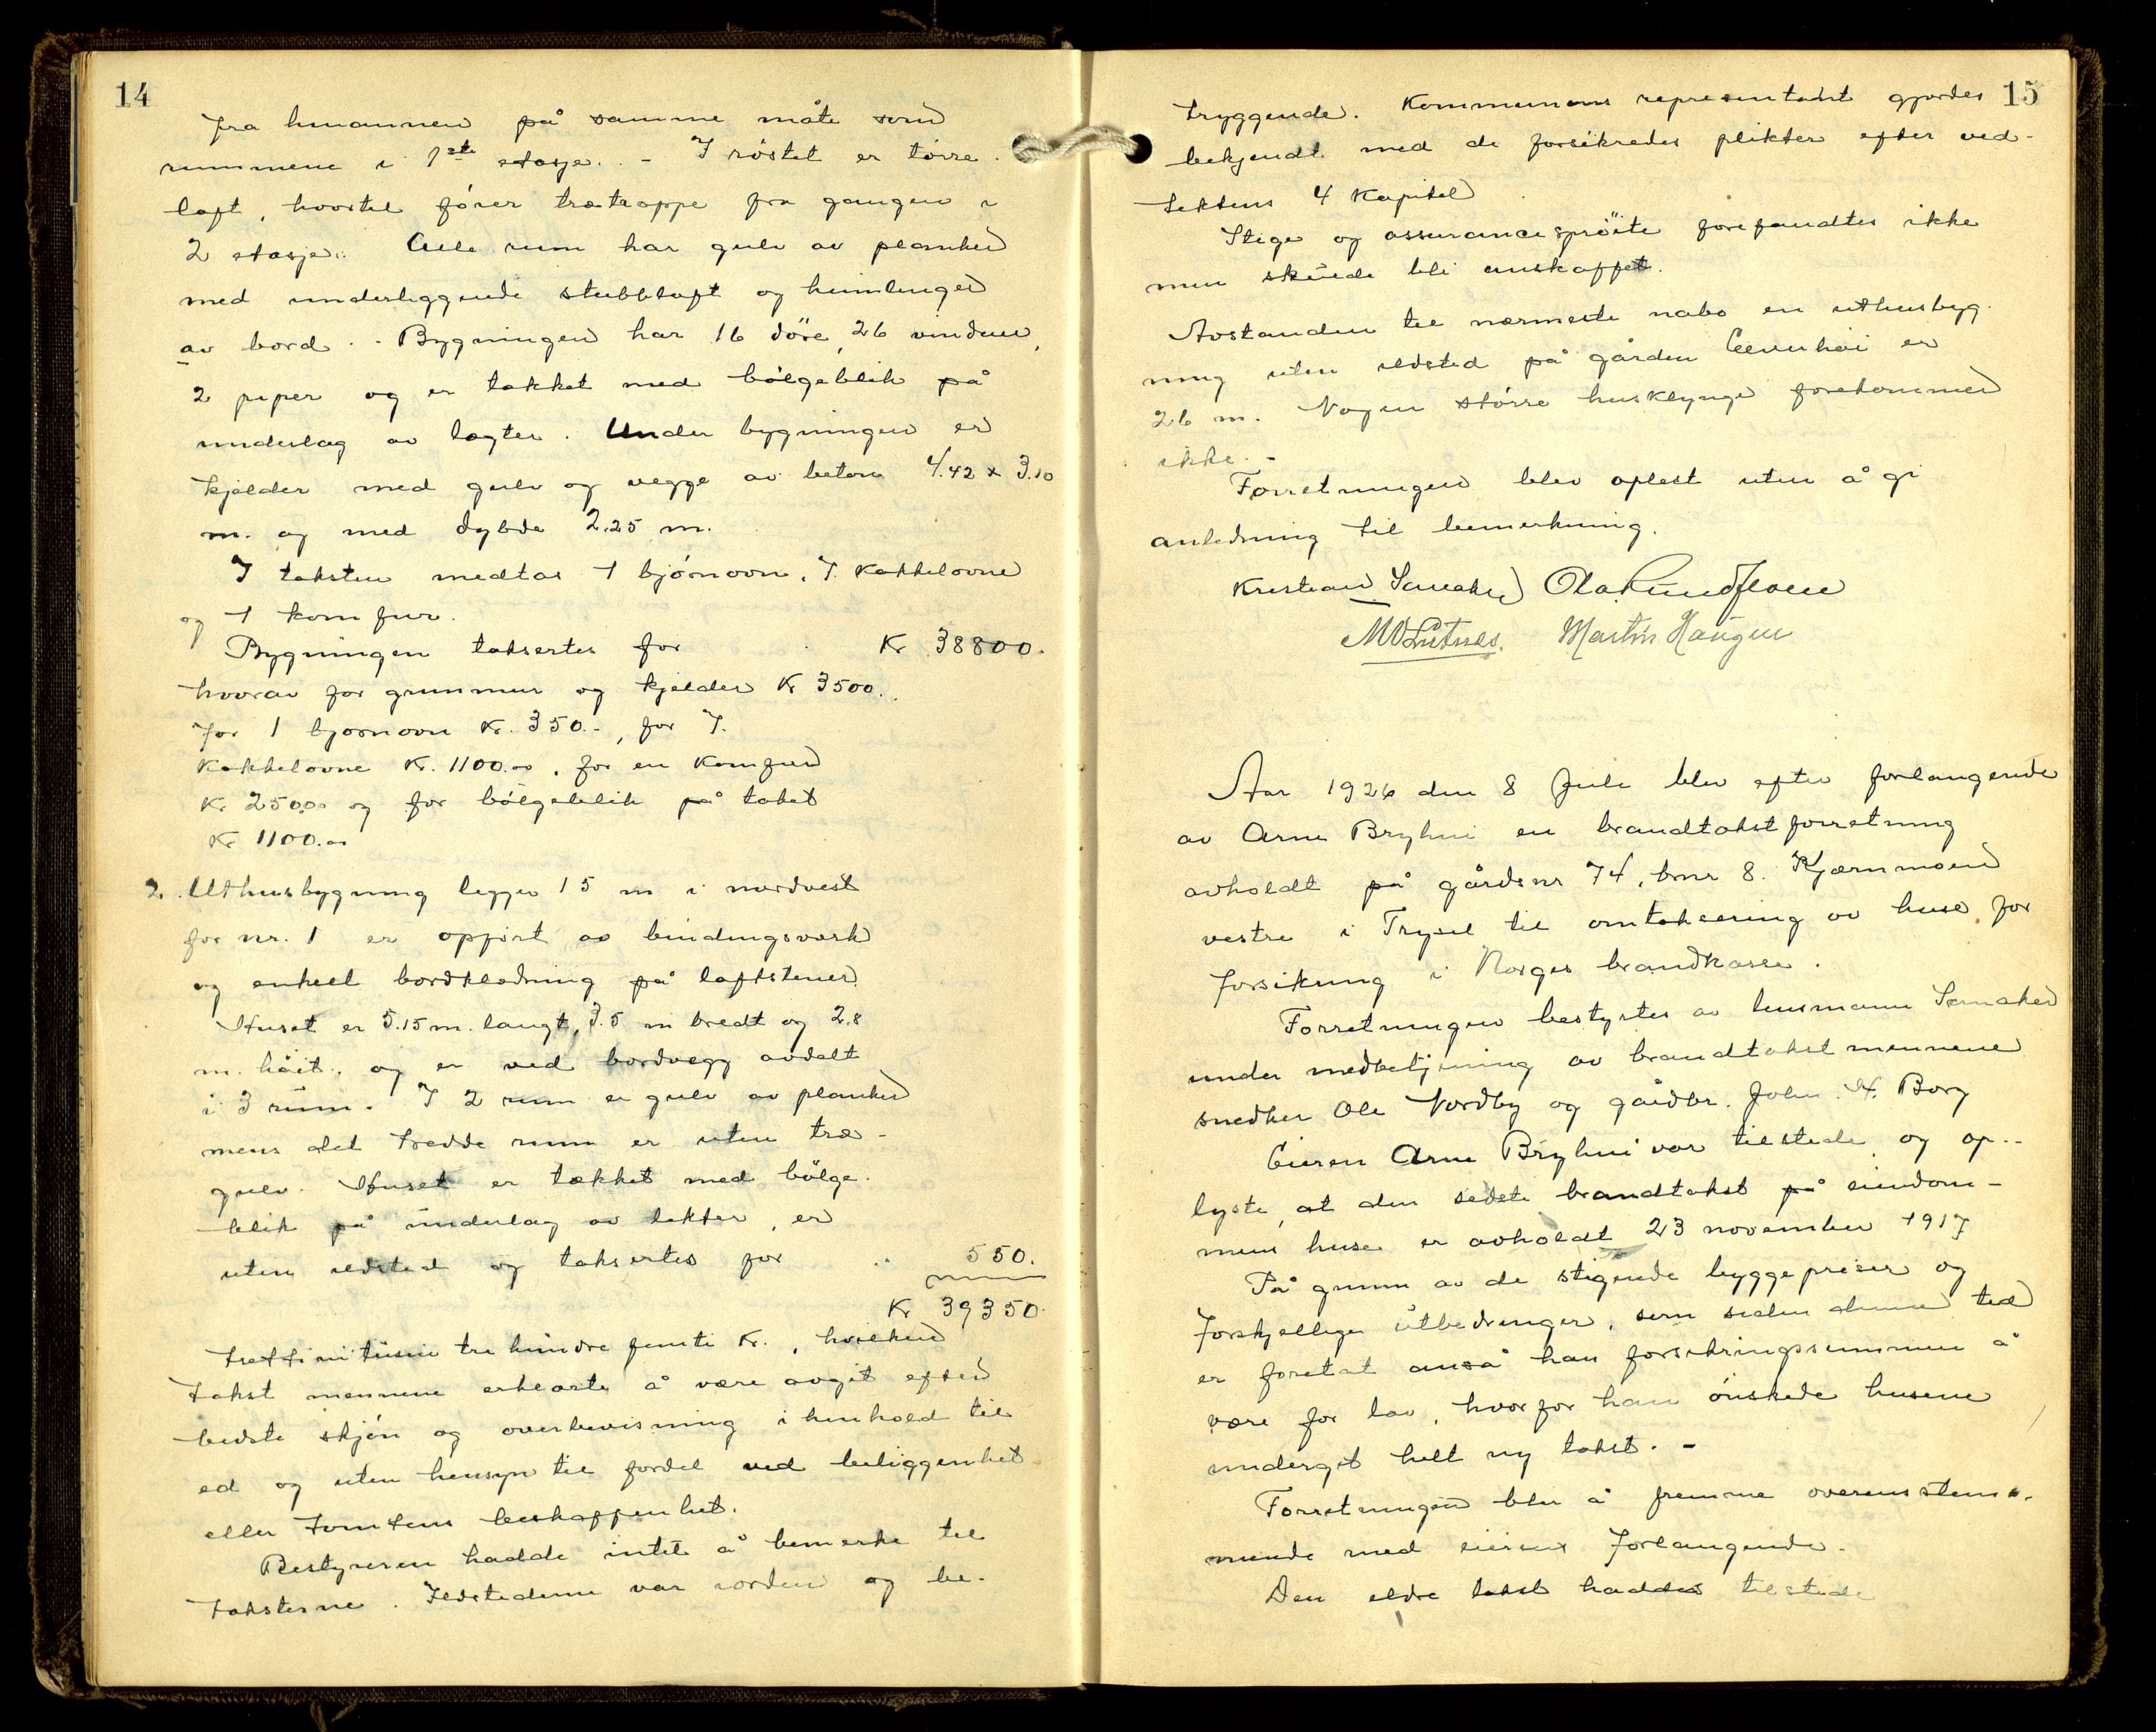 14
fra hinannen på samme måte som
rummene i 1ste etasje. - I röstet er törre
loft, hvortil förer trætrappe fra gangen i
2 etasje. Alle rum har gulv av planker
med underliggende stubbloft og himlinger
av bord. - Bygningen har 16 döre, 26 vinduer,
2 piper og er tækket med bölgeblik på
underlag av lægter. Under bygningen er
kjelder med gulv og vegge av beton 4.42 x 3.10
m. og med dybde 2.25 m.
I taksten medtas 1 bjørnovn, 7 kakkelovne
og 1 komfur.
Bygningen takseres for Kr 38800.
hvorav for grunmur og kjelder Kr 3500.
For 1 bjørnovn Kr. 350.-, for 7
kakkelovne Kr. 1100.00, for en komfur
Kr 250.00 og for bölgeblik på taket
Kr 1100.00
2. Uthusbygning ligger 15 m i nordvest
for nr. 1 er opfört av bindingsverk
og enkelt bordklædning på loftstener
Huset er 5.15 m. langt, 3.5 m bredt og 2.8
m. höit, og er ved bordvegg avdelt
i 3 rum. I 2 rum er gulv av planker
mens det tredde rum er uten træ-
gulv. Huset er tækket med bölge-
blik på underlag av lekter, er
uten ildsted og takseres for .. 550.
Kr 39350.
trettinitusen tre hundre femti Kr., hvilken
takst mennene erklærte å være avgit efter
bedste skjön og overbevisning i henhold til
ed og uten hensyn til fordel ved beliggenhet
eller tomtens beskaffenhet.
Bestyreren hadde intet å bemerke til
taksterne. Ildstederne var iorden og be-
15
tryggende. Kommunens representant gjordes
bekjendt med de forsikredes plikter efter ved-
tektens 4 Kapitel
Stige og assurancespröite forefandtes ikke
men skulde bli anskaffet.
Avstanden til nærmeste nabo en uthusbyg-
ning uten ildsted på gården Elvenhöi er
26 m. Nogen större husklynge forekommer
ikke. -
Forretningen blev oplest uten å gi
anledning til bemerkning.
Kristian Sæmaker Ola Rundfloen
M O Lutnes. Martin Haugen
Aar 1926 den 8 Juli blev efter forlangende
av Arne Bryhni en brandtakstforretning
avholdt på gårdsnr 74, bnr 8. Kjærnmoen
vestre i Trysil til omtaksering av huse for
forsikring i Norges brandkasse.
Forretningen bestyrtes av lensmann Sæmaker
under medbetjening av brandtakstmennene
snedker Ole Nordby og gårdbr. John H. Borg
Eieren Arne Bryhni var tilstede og op-
lyste, at den sidste brandtakst på eiendom-
mens huse er avholdt 23 november 1917
På grunn av de stigende byggepriser og
forskjellige utbedringer, som siden denne tid
er foretat anså han forsikringssummen å
være for lav, hvorfor han önskede husene
undergit helt ny takst. -
Forretningen blev å fremme overensstem-
mende med eierens forlangende.
Den eldre takst haddes tilstede